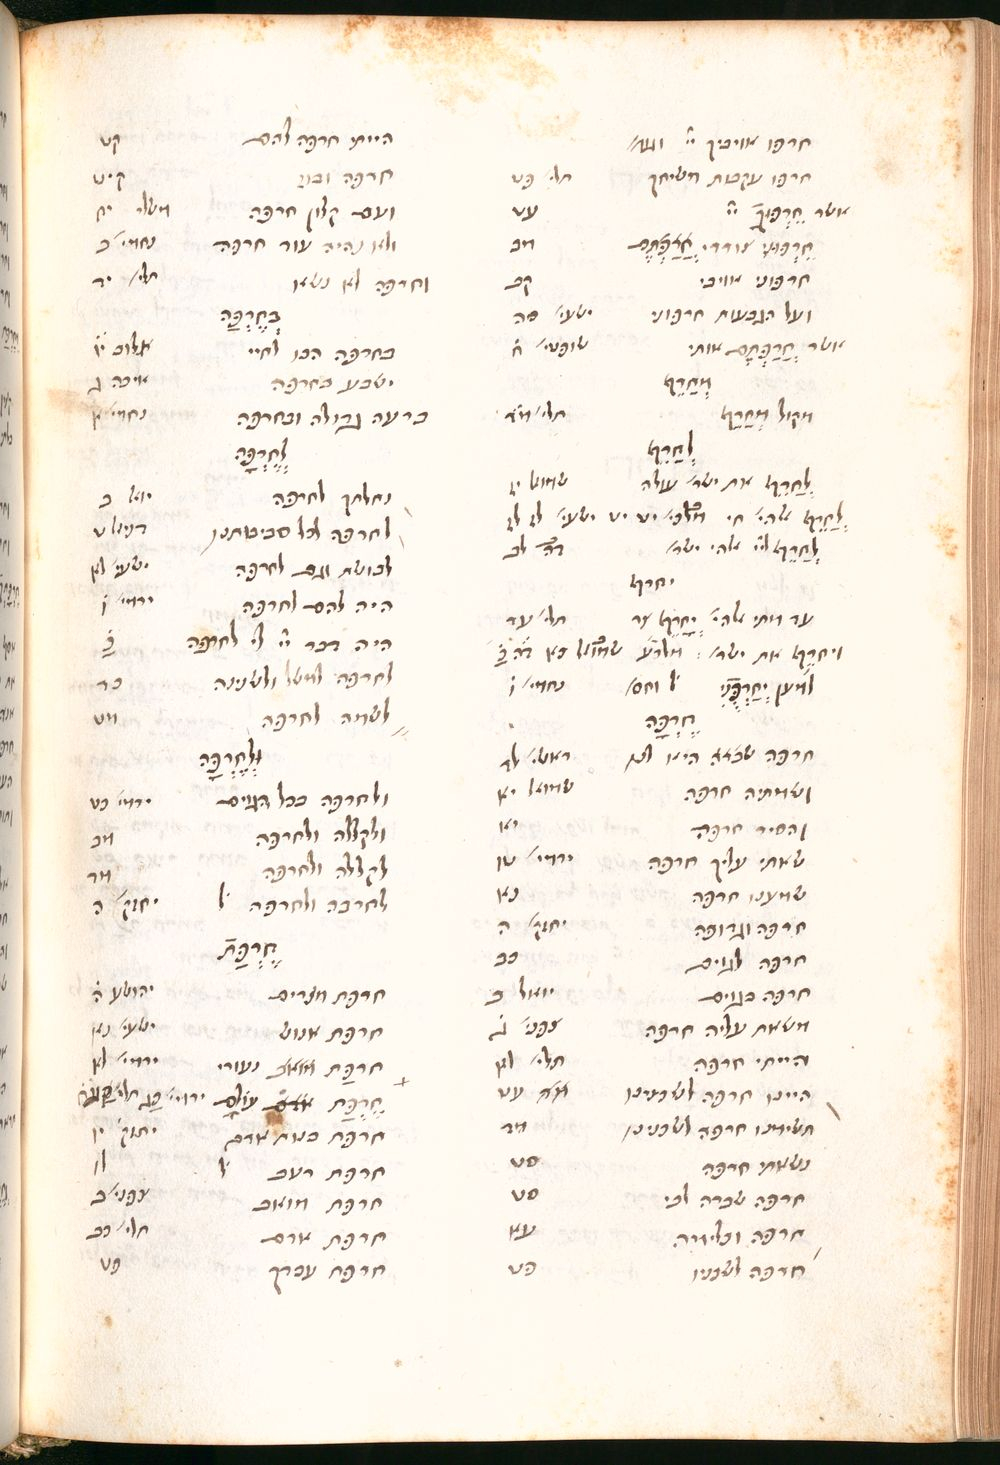 חרפו אויביך יי׳ וגמ׳
חרפו עקבות משיחך תלי׳ פט
אשר חֵרְפוּךָ יי׳ עט
חֵרְפוּנִי צוררי מב
חרפוני אויבי קב
ועל הגבעות חרפוני ישעי׳ סה
אשר חֵרַפְתֶּם אותי שופטי׳ ח
מְחָרֵף
מקול מְחָרֵף תלי׳ מד
לְחָרֵף
לְחָרֵף את ישר׳ עולה שמואל יז
לְחָרֵף אלהי׳ חי מלכי׳ יט יט ישעי׳ לז לז
לְחָרֵף ליי׳ אלהי ישר׳ דה לב
יחרף
עד מתי אלהי׳ יְחָרֵף צר תלי׳ עד
ויחרף את ישר׳ שמואל כא דה
למען יְחָרְפֻנִי נחמי׳ ו
חֶרְפָּה
חרפה היא לנו ראשי׳ לד
ושמתיה חרפה שמואל יא
והסיר חרפה יז
שאתי עליך חרפה ירמי׳ טו
שמענו חרפה נא
חרפה וגדופה יחזק׳ ה
חרפה לגוים כב
חרפה בגוים יואל ב
משאת עליה חרפה צפני׳ ג
הייתי חרפה תלי׳ לא
היינו חרפה לשכנינו עט
תשימנו חרפה לשכנינו מד
נשאתי חרפה סט
חרפה שברה לבי סט
חרפה וכלימה עא
חרפה לשכניו פט
הייתי חרפה להם קט
חרפה ובוז קיט
ועם קלון חרפה משלי יח
ולא נהיה עוד חרפה נחמי׳ ב
וחרפה לא נשא תלי׳ יד
בְּחֶרְפָּה
בחרפה הכו לחיי איוב יו
ישבע בחרפה איכה ג
ברעה גדולה ובחרפה נחמי׳ א
לְחֶרְפָּה
נחלתך לחרפה יואל ב
לחרפה לכל סביבותינו דניאל ט
לבושת וגם לחרפה ישעי׳ ל
היה להם לחרפה ירמי׳ ו
היה דבר יי׳ לי לחרפה כ
לחרפה למשל ולשנינה כד
לשמה לחרפה מט
וּלְחֶרְפָּה
ולחרפה בכל הגוים ירמי׳ כט
ולקללה ולחרפה מב
לקללה ולחרפה מד
לחרבה ולחרפה יחזק׳ ה
חֶרְפַּת
חרפת מצרים יהושע ה
חרפת אנוש ישעי׳ נא
חרפת נעורי ירמי׳ לא
חֶרְפַּת עולם ירמי׳ כג תלי׳
חרפת בנות ארם יחזק׳ יו
חרפת רעב לו
חרפת מואב צפני׳ ב
חרפת אדם תלי׳ כב
חרפת עבדך פט